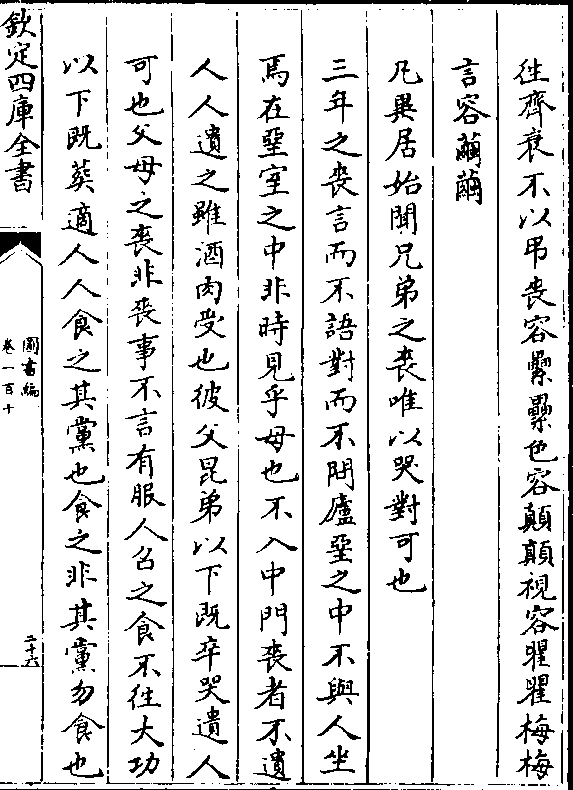 往齊衰不以弔喪容纍纍色容顛顛視容瞿瞿梅梅
言容繭繭
凡異居始聞兄弟之喪唯以哭對可也
三年之喪言而不語對而不問廬堊之中不與人坐
焉在堊室之中非時見乎母也不入中門喪者不遺
人人遺之雖酒肉受也彼父昆弟以下既卒哭遺人
可也父母之喪非喪事不言有服人召之食不往大功
以下既葬適人人食之其黨也食之非其黨勿食也
欽定四庫全書
圖書編
卷一百十
二十六